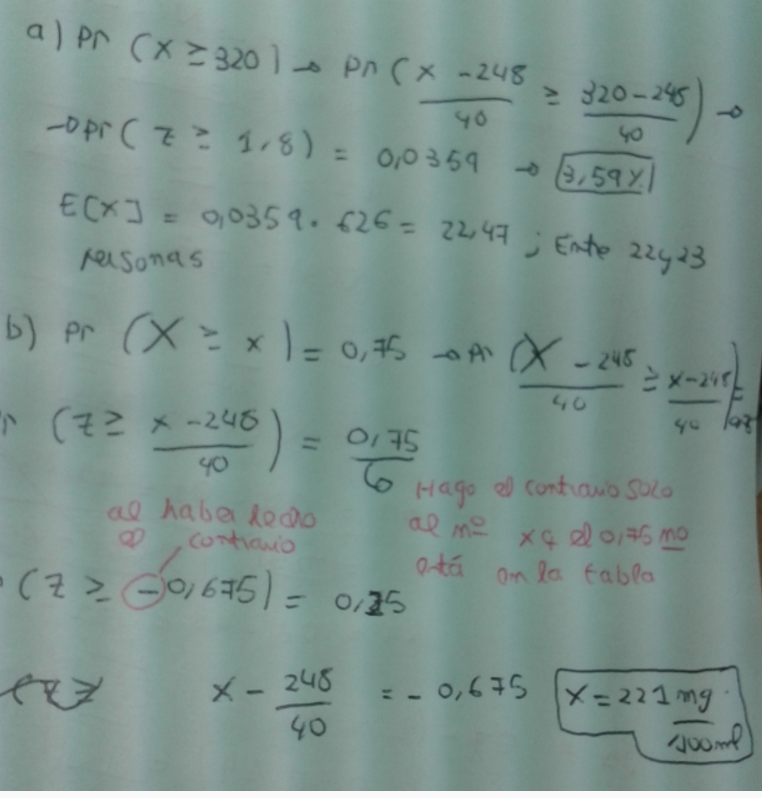 a) Pr (X ≥ 320) → Pr ( X - 248 / 40 ≥ 320 - 248 / 40 ) →
→ Pr ( Z ≥ 1,8 ) = 0,0359 → 3,59%
E[X] = 0,0359 · 626 = 22,47 ; Entre 22 y 23
personas
b) Pr (X ≥ x) = 0,75 → Pr ( X - 248 / 40 ≥ x - 248 / 40 ) =
( Z ≥ x - 248 / 40 ) = 0,75
Hago el contrario solo
al nº xq el 0,75 no
está en la tabla
al haber hecho
el contrario
(Z ≥ -0,675) = 0,25
x - 248 / 40 = - 0,675 x = 221 mg / 100ml